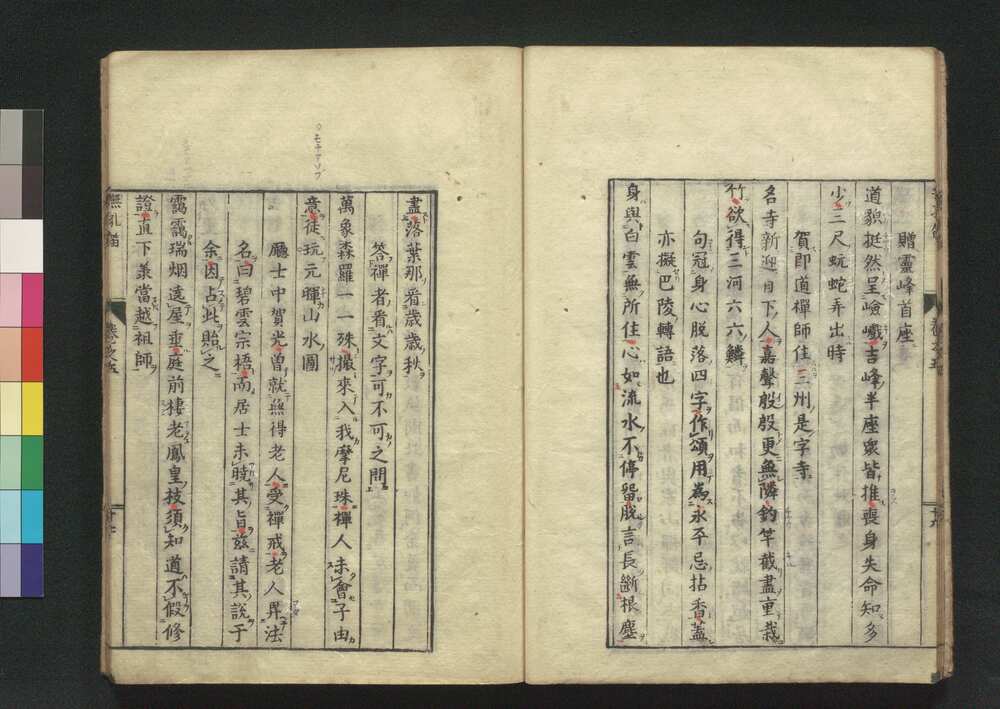 贈靈峰首座
道貌挺然呈嶮巇吉峰半座衆皆推喪身失命知多
少三尺蚖蛇弄出時
賀即道禪師住三州是字寺
名寺新迎目下人嘉聲殷殷更無隣釣竿截盡重栽
竹欲得三河六六鱗
句冠身心脱落四字作頌用為永平忌拈香蓋
亦擬巴陵轉語也
身與白雲無所住心如流水不停畱脱言長斷根塵
盡落葉那看歳歳秋
答禪者看文字可不可之問
萬象森羅一一殊撮來入我摩尼珠禪人未會子由
意徒玩元暉山水圖
モテアソブ
廳士中賀光曽就無得老人受禪戒老人昇法
名曰碧雲宗梧南居士未曉其旨茲請其説于
余因占此貽之
靄靄瑞烟遶屋垂庭前棲老鳳皇枝須知道不假修
證直下兼當越祖師
無孔笛
卷之五